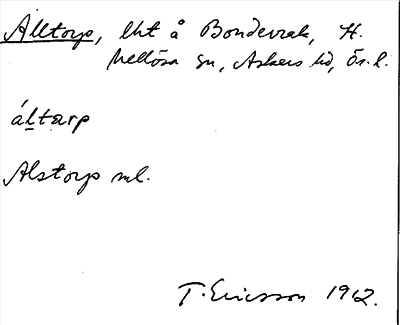 Alltorp, lht å Bondevrak, H.
Mellösa sn, Askers hd, Ör. l.
áḻtarp
Alstorp ml.
T. Ericsson 1962.